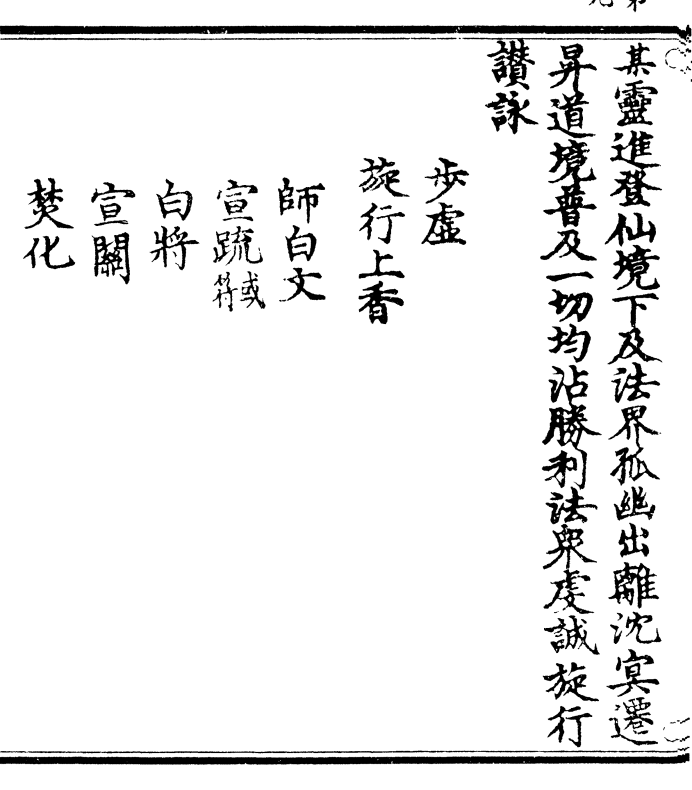 某靈進登仙境下及法界孤幽出離沈冥遷
昇道境普及一切均沾勝利法衆虔誠旋行
讃詠
步虛
旋行上香
師白文
宣疏或符
白將
宣關
焚化